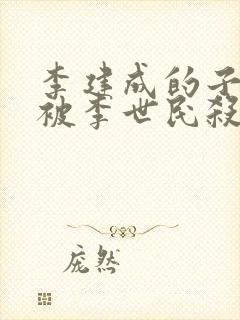 李建成的子
被李世民殺
庞然